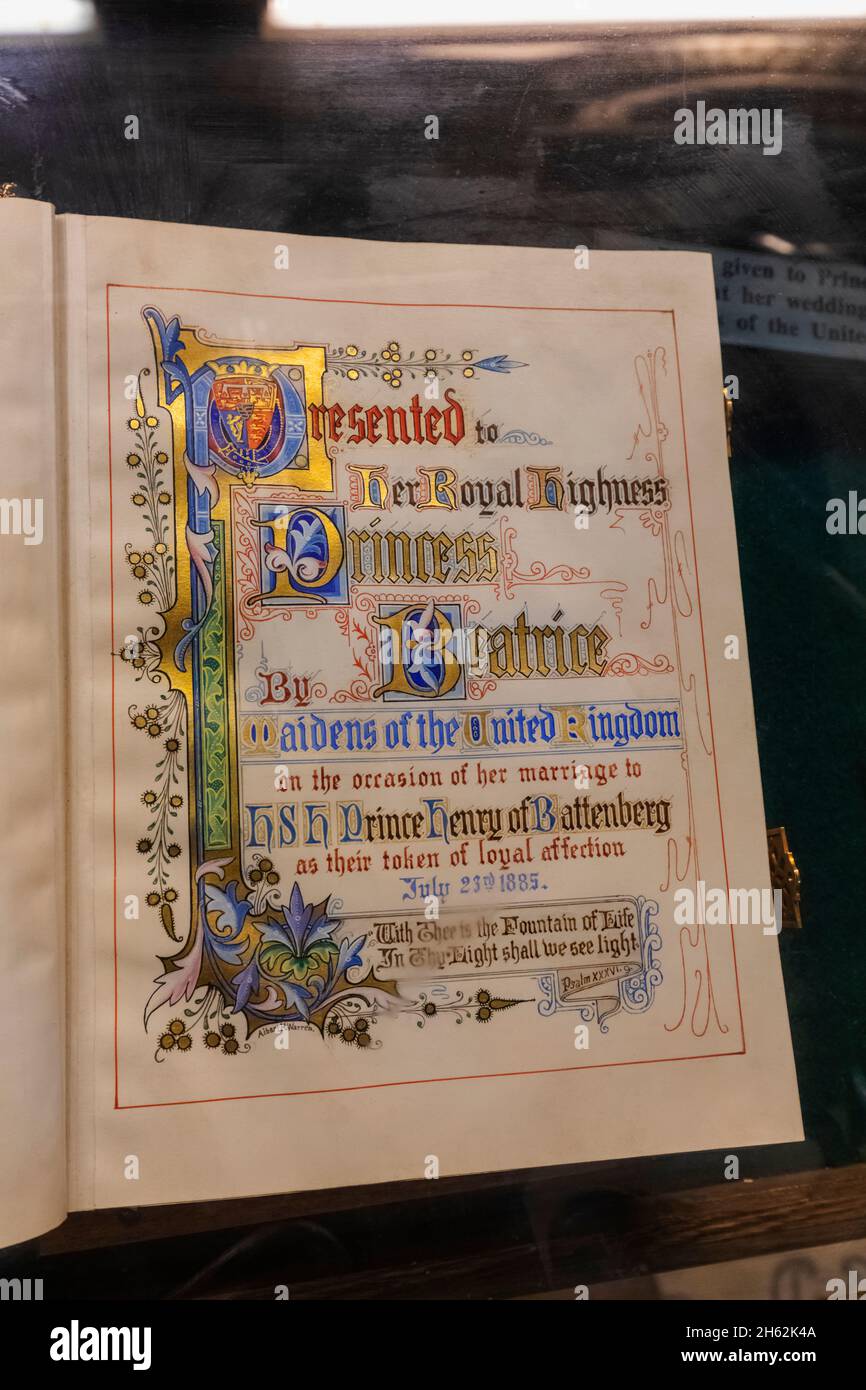 given to Prin
at her wedding
s of the Unite
Presented to
Her Royal Highness
Princess
Beatrice
By
Maidens of the United Kingdom
on the occasion of her marriage to
HSH Prince Henry of Battenberg
as their token of loyal affection
July 23rd 1885.
"With Thee is the Fountain of Life
In Thy Light shall we see light.
Psalm XXXVI. 9.
Albert H. Warren.
a alamy
a
a
alamy
alamy
Image ID: 2H62K4A
www.alamy.com